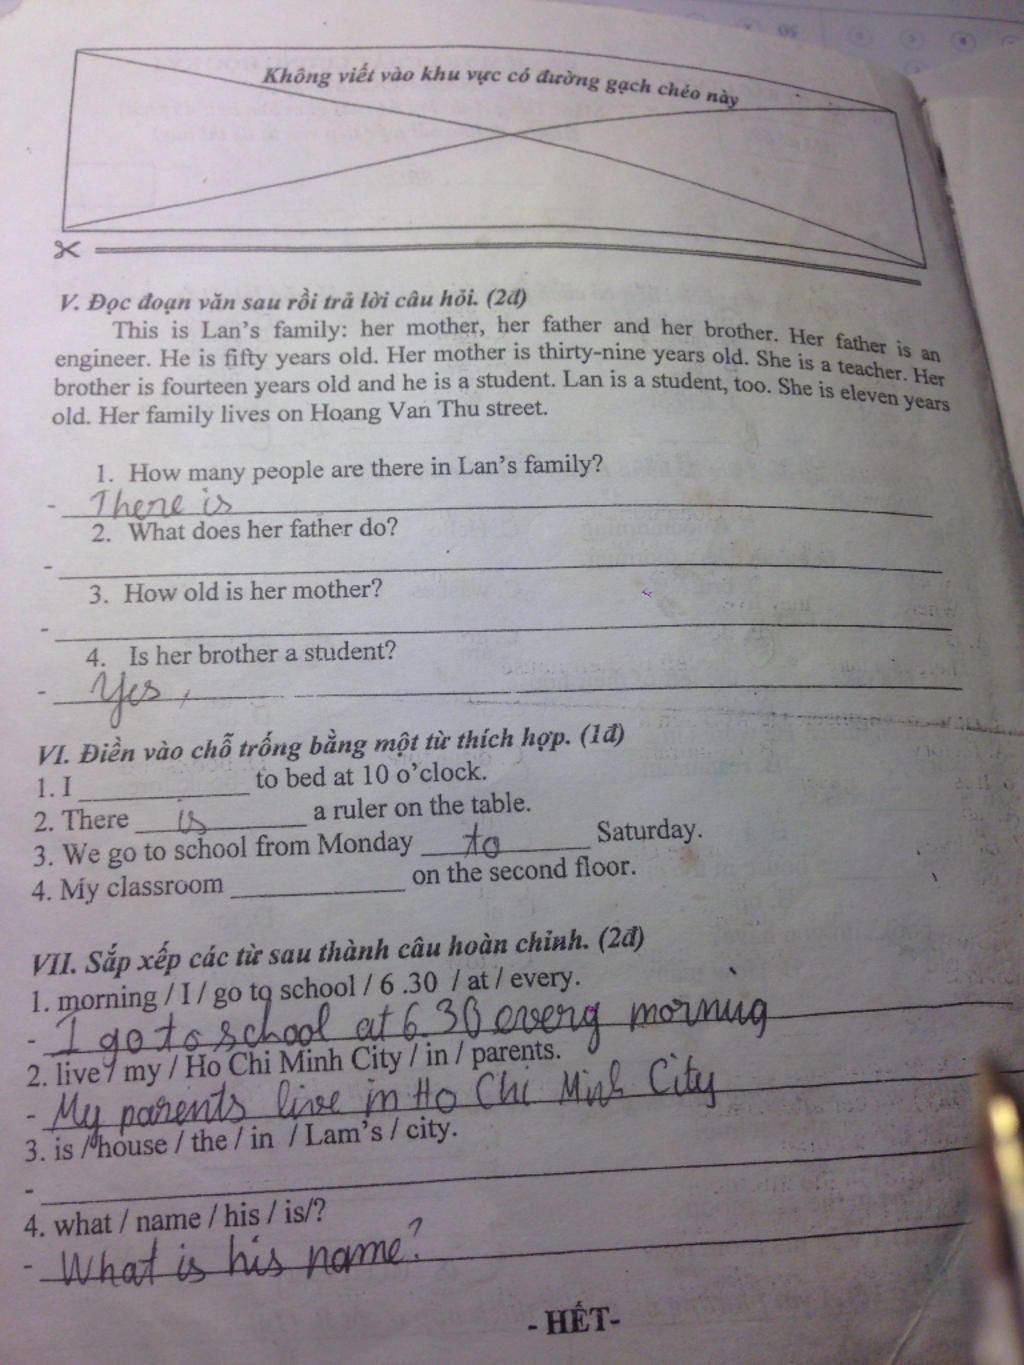 Không viết vào khu vực có đường gạch chéo này
V. Đọc đoạn văn sau rồi trả lời câu hỏi. (2đ)
This is Lan's family: her mother, her father and her brother. Her father is an
engineer. He is fifty years old. Her mother is thirty-nine years old. She is a teacher. Her
brother is fourteen years old and he is a student. Lan is a student, too. She is eleven years
old. Her family lives on Hoang Van Thu street.
1. How many people are there in Lan's family?
- There is
2. What does her father do?
-
3. How old is her mother?
-
4. Is her brother a student?
- Yes,
VI. Điền vào chỗ trống bằng một từ thích hợp. (1đ)
1. I ____ to bed at 10 o'clock.
2. There is a ruler on the table.
3. We go to school from Monday to Saturday.
4. My classroom ____ on the second floor.
VII. Sắp xếp các từ sau thành câu hoàn chỉnh. (2đ)
1. morning / I / go to school / 6 .30 / at / every.
- I go to school at 6.30 every morning
2. live / my / Ho Chi Minh City / in / parents.
- My parents live in Ho Chi Minh City
3. is / house / the / in / Lam's / city.
-
4. what / name / his / is/?
- What is his name?
- HẾT-